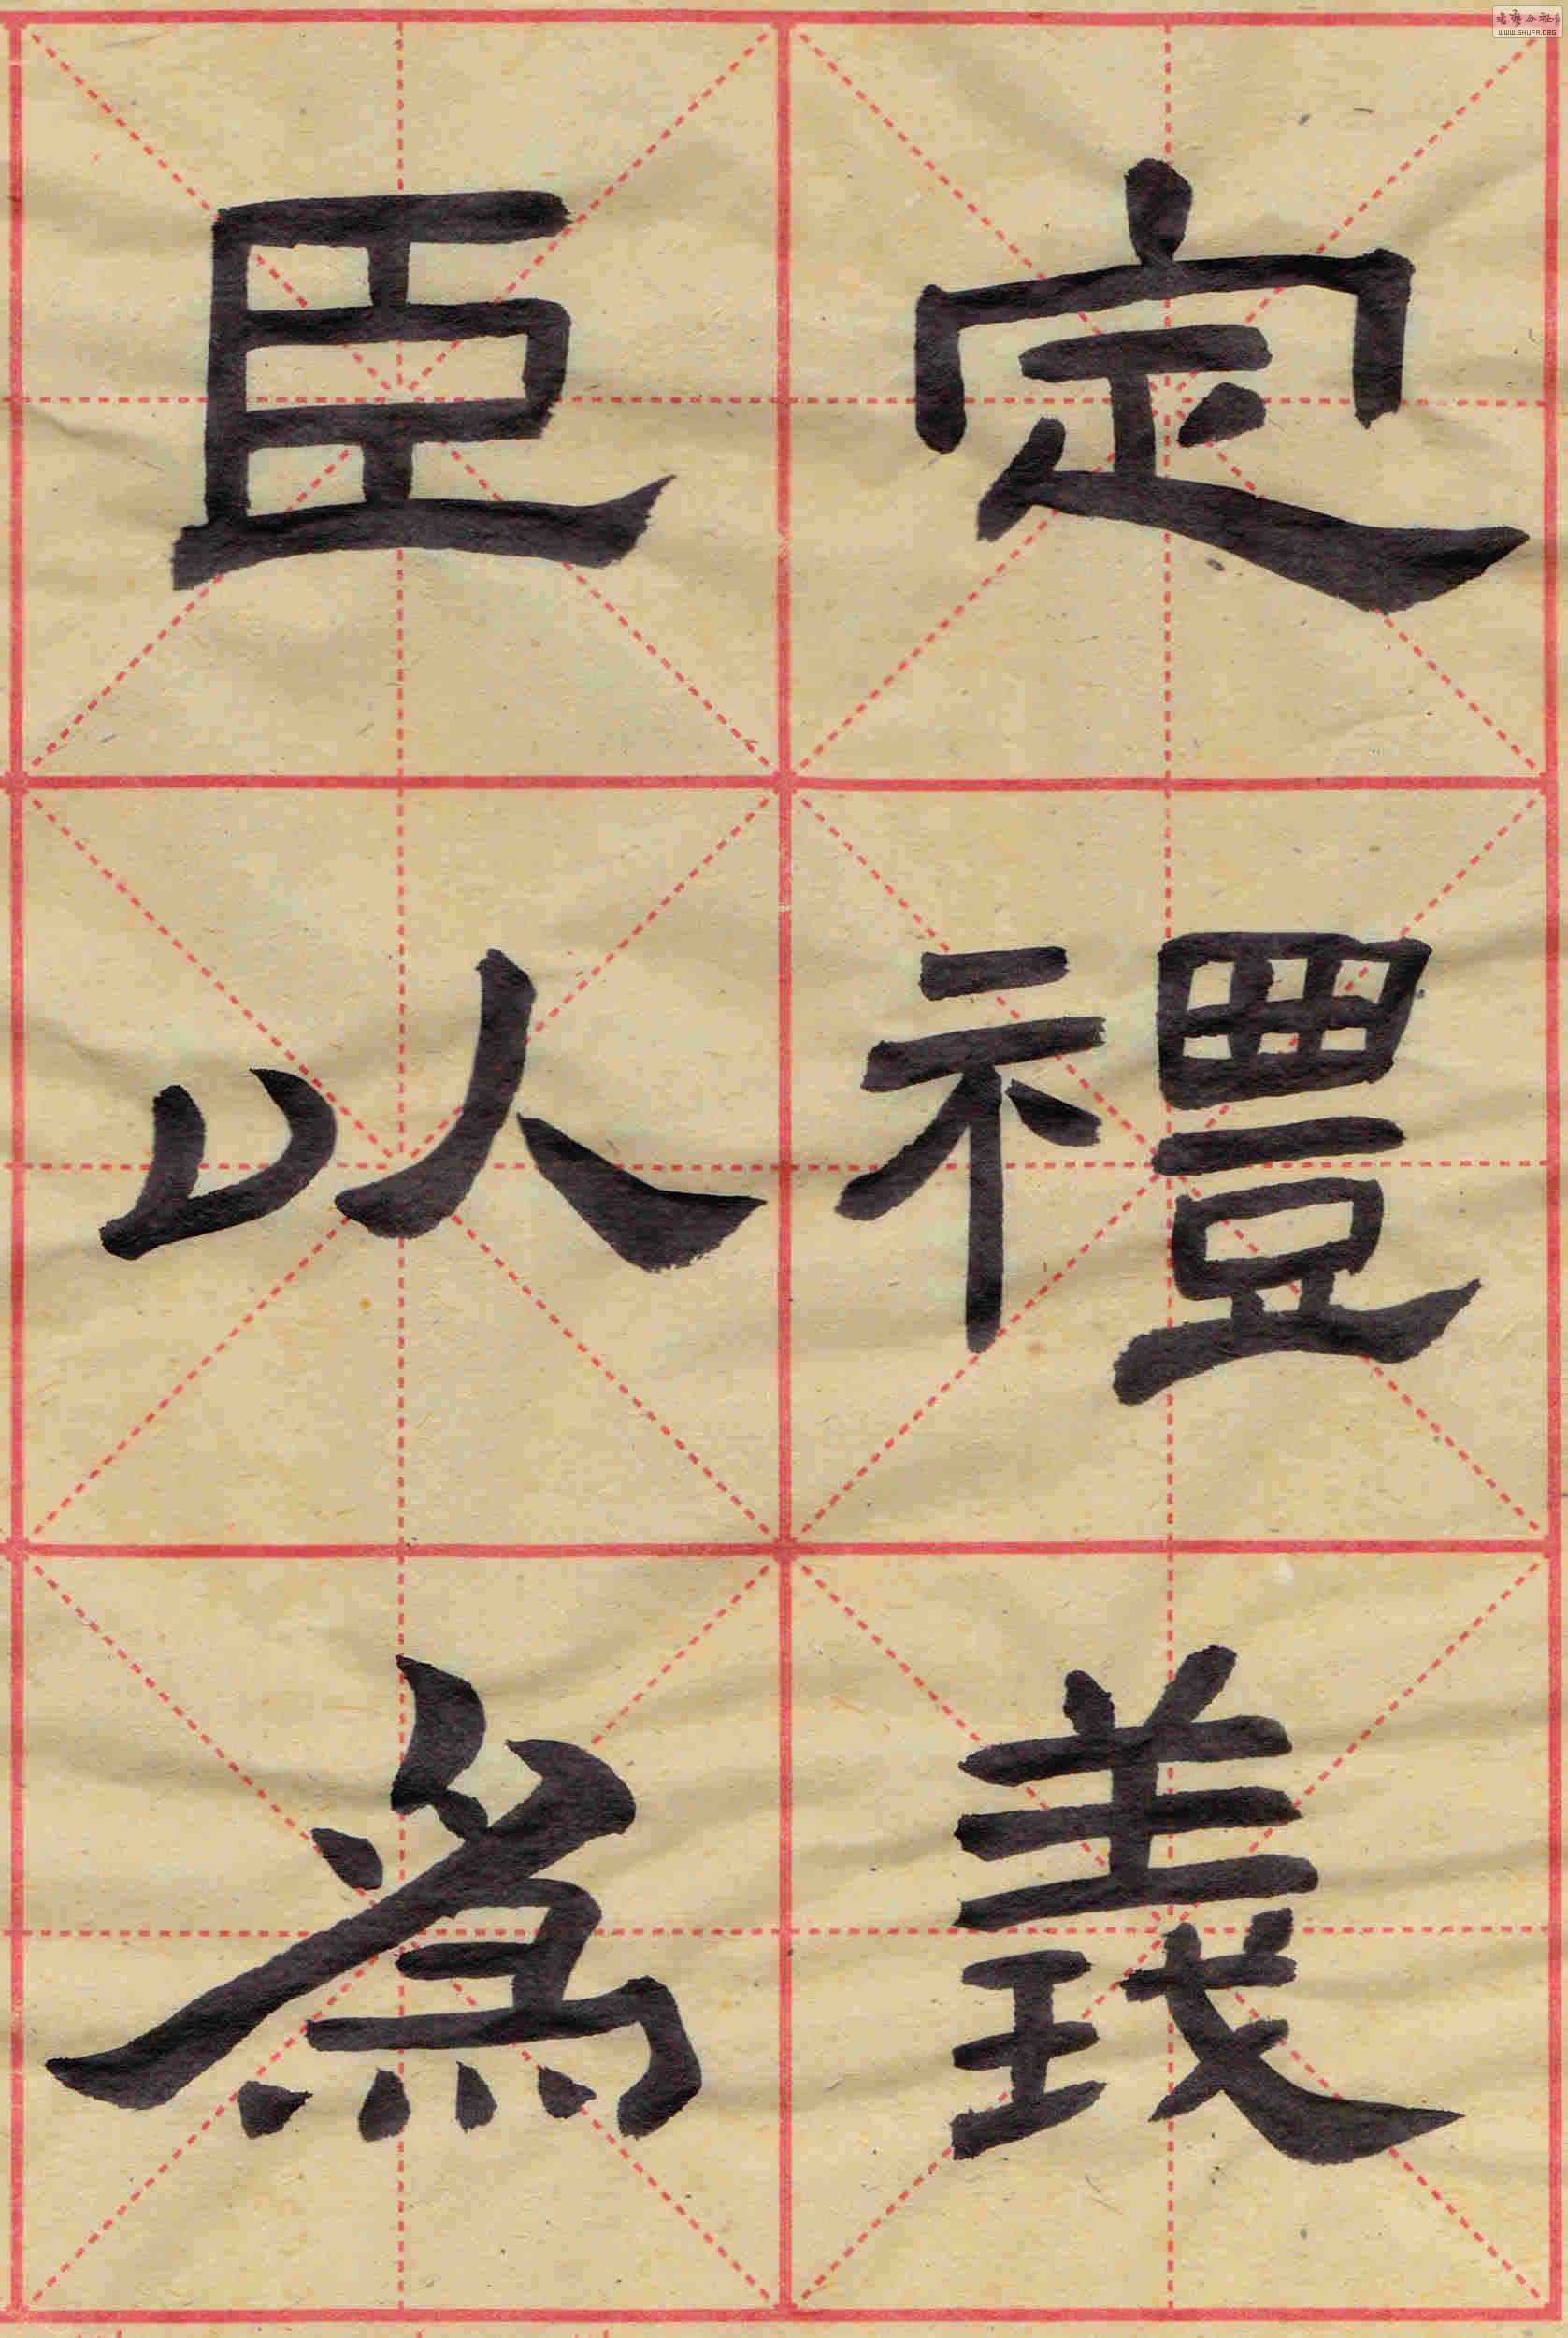 定禮義
臣以為
WWW.SHUFA.ORG